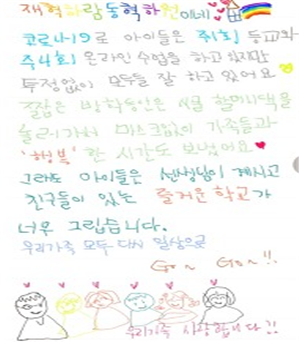 재혁하람동혁하원이네
코로나19로 아이들은 주1회 등교와
주4회 온라인 수업을 하고 있지만
투정없이 모두들 잘 하고 있어요
짧은 방학동안은 시골 할머니댁을
놀러가서 마스크없이 가족들과
'행복'한 시간도 보냈어요
그래도 아이들은 선생님이 계시고
친구들이 있는 즐거운 학교가
너무 그립습니다.
우리가족 모두 다시 일상으로
Go~ Go~!!
우리가족 사랑합니다?!